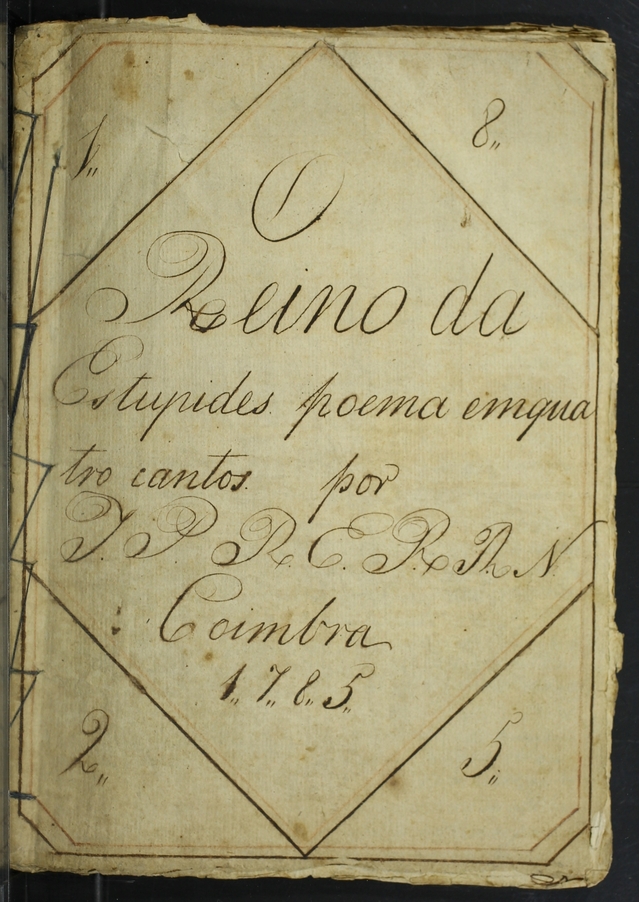 1,, 8,,
O
Reino da
Estupides. poema emqua
tro cantos. por
J. P. R. E. R. R. N.
Coimbra
1,, 7,, 8,, 5,,
2,, 5,,